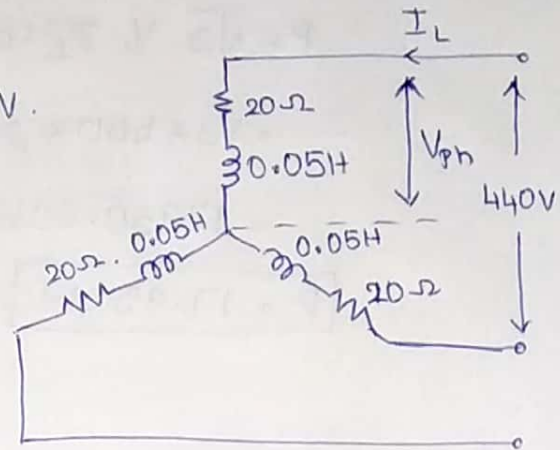 I_L
V.
20Ω
0.05H
V_Ph
440V
20Ω. 0.05H
0.05H
20Ω